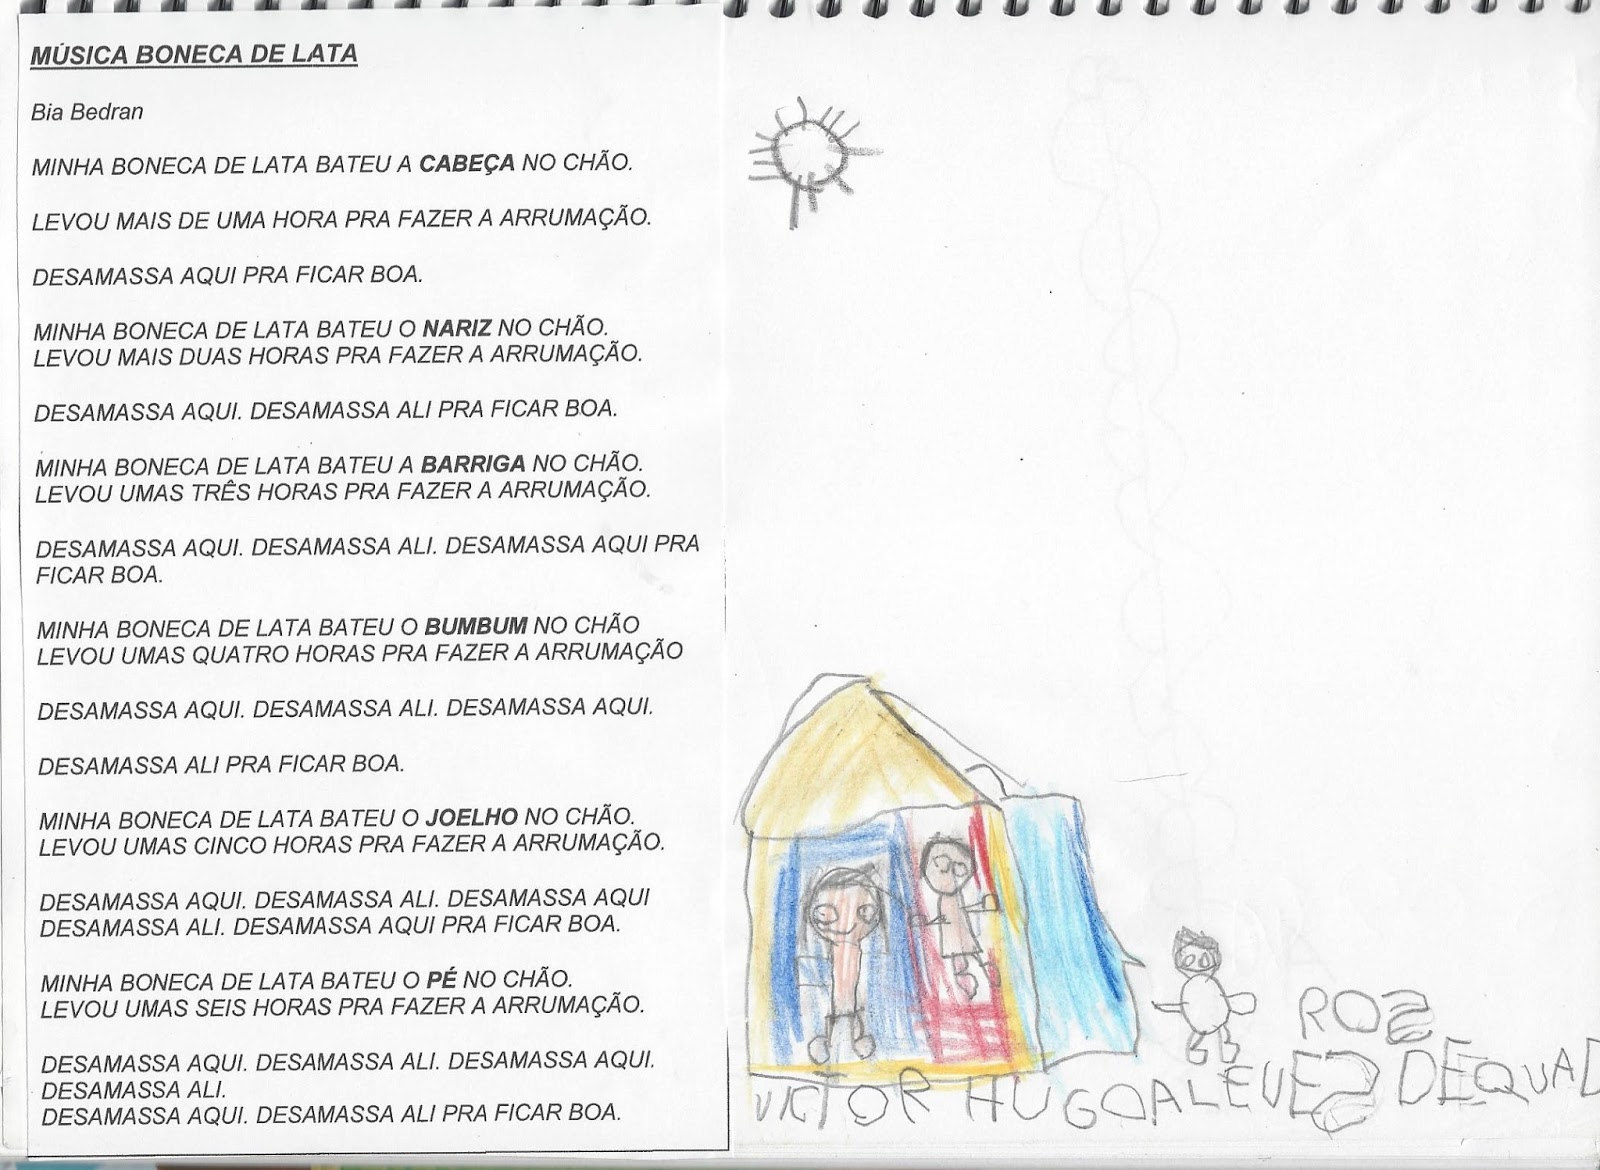 MÚSICA BONECA DE LATA
Bia Bedran
MINHA BONECA DE LATA BATEU A CABEÇA NO CHÃO.
LEVOU MAIS DE UMA HORA PRA FAZER A ARRUMAÇÃO.
DESAMASSA AQUI PRA FICAR BOA.
MINHA BONECA DE LATA BATEU O NARIZ NO CHÃO.
LEVOU MAIS DUAS HORAS PRA FAZER A ARRUMAÇÃO.
DESAMASSA AQUI. DESAMASSA ALI PRA FICAR BOA.
MINHA BONECA DE LATA BATEU A BARRIGA NO CHÃO.
LEVOU UMAS TRÊS HORAS PRA FAZER A ARRUMAÇÃO.
DESAMASSA AQUI. DESAMASSA ALI. DESAMASSA AQUI PRA
FICAR BOA.
MINHA BONECA DE LATA BATEU O BUMBUM NO CHÃO
LEVOU UMAS QUATRO HORAS PRA FAZER A ARRUMAÇÃO
DESAMASSA AQUI. DESAMASSA ALI. DESAMASSA AQUI.
DESAMASSA ALI PRA FICAR BOA.
MINHA BONECA DE LATA BATEU O JOELHO NO CHÃO.
LEVOU UMAS CINCO HORAS PRA FAZER A ARRUMAÇÃO.
DESAMASSA AQUI. DESAMASSA ALI. DESAMASSA AQUI
DESAMASSA ALI. DESAMASSA AQUI PRA FICAR BOA.
MINHA BONECA DE LATA BATEU O PÉ NO CHÃO.
LEVOU UMAS SEIS HORAS PRA FAZER A ARRUMAÇÃO.
DESAMASSA AQUI. DESAMASSA ALI. DESAMASSA AQUI.
DESAMASSA ALI.
DESAMASSA AQUI. DESAMASSA ALI PRA FICAR BOA.
ROS
VICTOR HUGO ALEVES DE QUAD